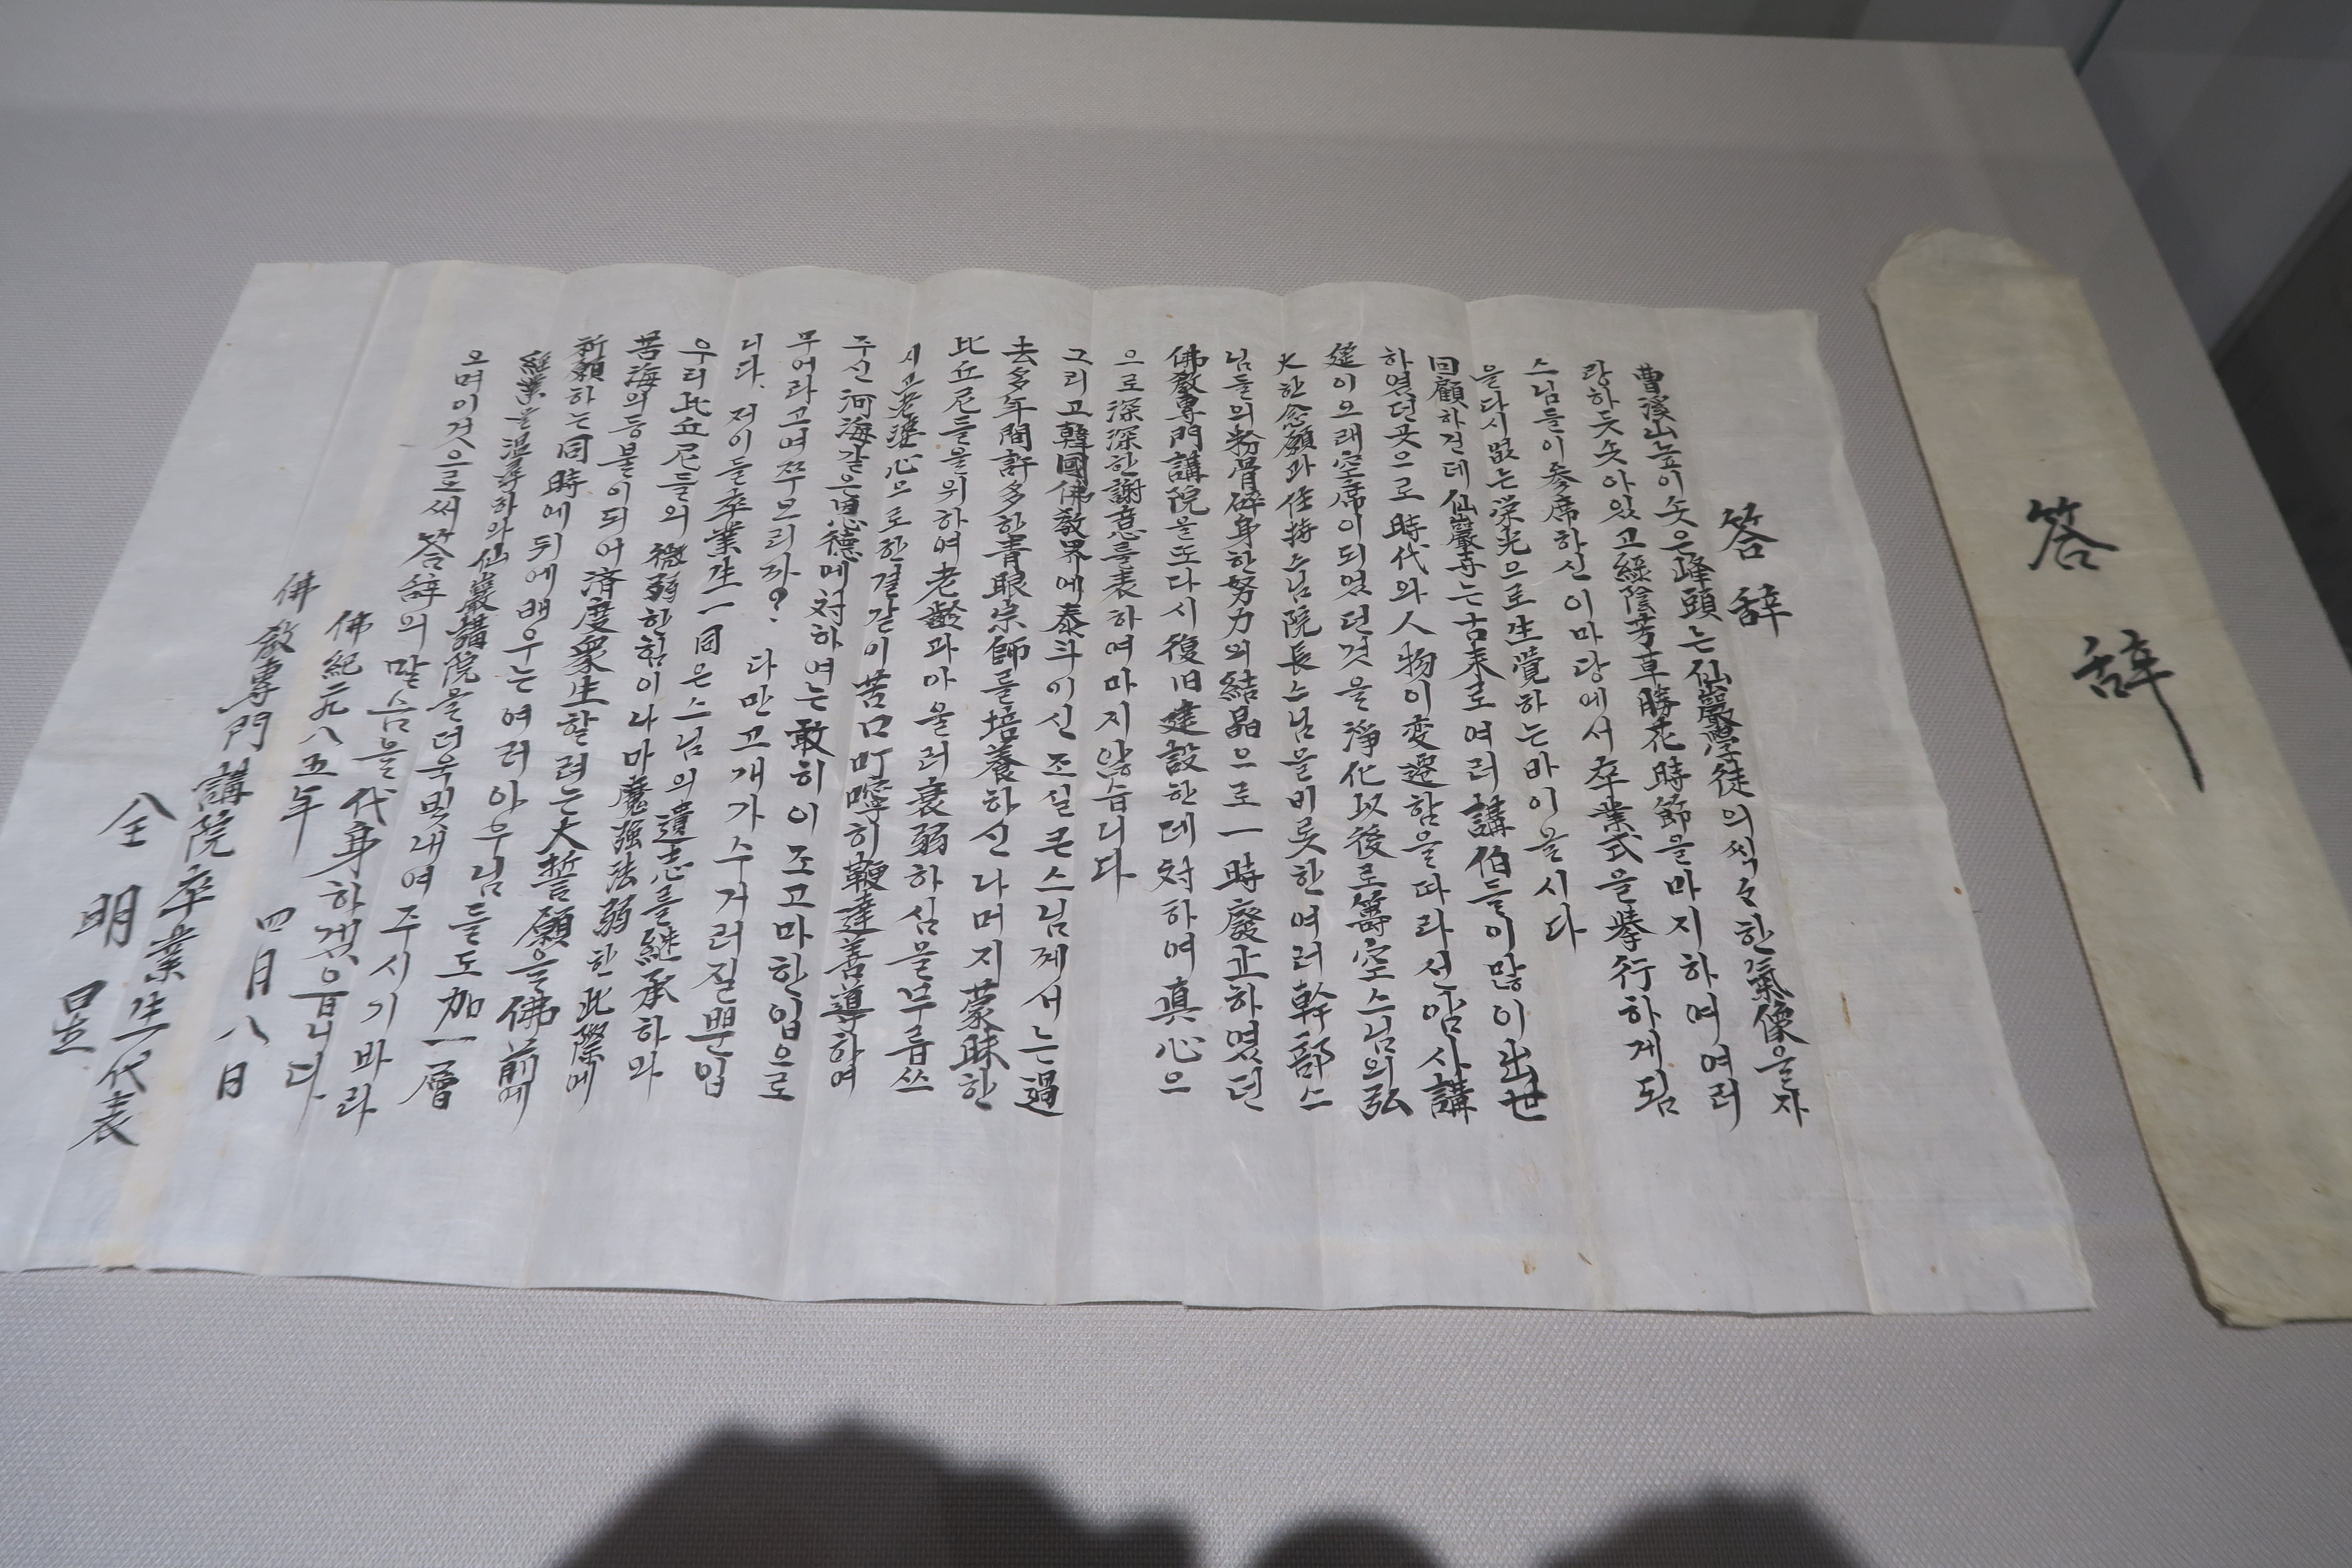 答辞
答辞
曹溪山높이솟은峰頭는仙巖學徒의씩々한氣像을자
랑하듯솟아있고綠陰芳草勝花時節을마지하여여러
스님들이參席하신이마당에서卒業式을擧行하게됨
을다시없는栄光으로生覺하는바이올시다
回顧하건데仙巖寺는古来로여러講伯들이많이出世
하였던곳으로時代와人物이変遷함을따라선암사講
筵이으래空席이되였던것을淨化以後로箒空스님의弘
大한念願과住持스님院長스님을비롯한여러幹部스
님들의粉骨碎身한努力의結晶으로一時廢止하였던
佛敎專門講院을또다시復旧建設한데対하여眞心으
으로深深한謝意를表하여마지않습니다
그리고韓國佛敎界에泰斗이신조실큰스님께서는過
去多年間許多한靑眼宗師를培養하신나머지蒙昧한
比丘尼들을위하여老齡과아울러衰弱하심을무릅쓰
시고老婆心으로한결같이苦口叮嚀히鞭達善導하여
주신河海같은恩德에対하여는敢히이조고마한입으로
무어라고여쭈오리까? 다만고개가수거러질뿐입
니다. 저이들卒業生一同은스님의遺志를継承하와
우리比丘尼들의微弱한힘이나마魔强法弱한此際에
苦海의등불이되어済度衆生할려는大誓願을佛前에
祈願하는同時에뒤에배우는여러아우님들도加一層
經業을温尋하와仙巖講院을더욱빛내여주시기바라
오며이것으로써答辞의말슴을代身하겠읍니다
佛紀二九八五年 四月八日
佛敎專門講院卒業生代表
全明星